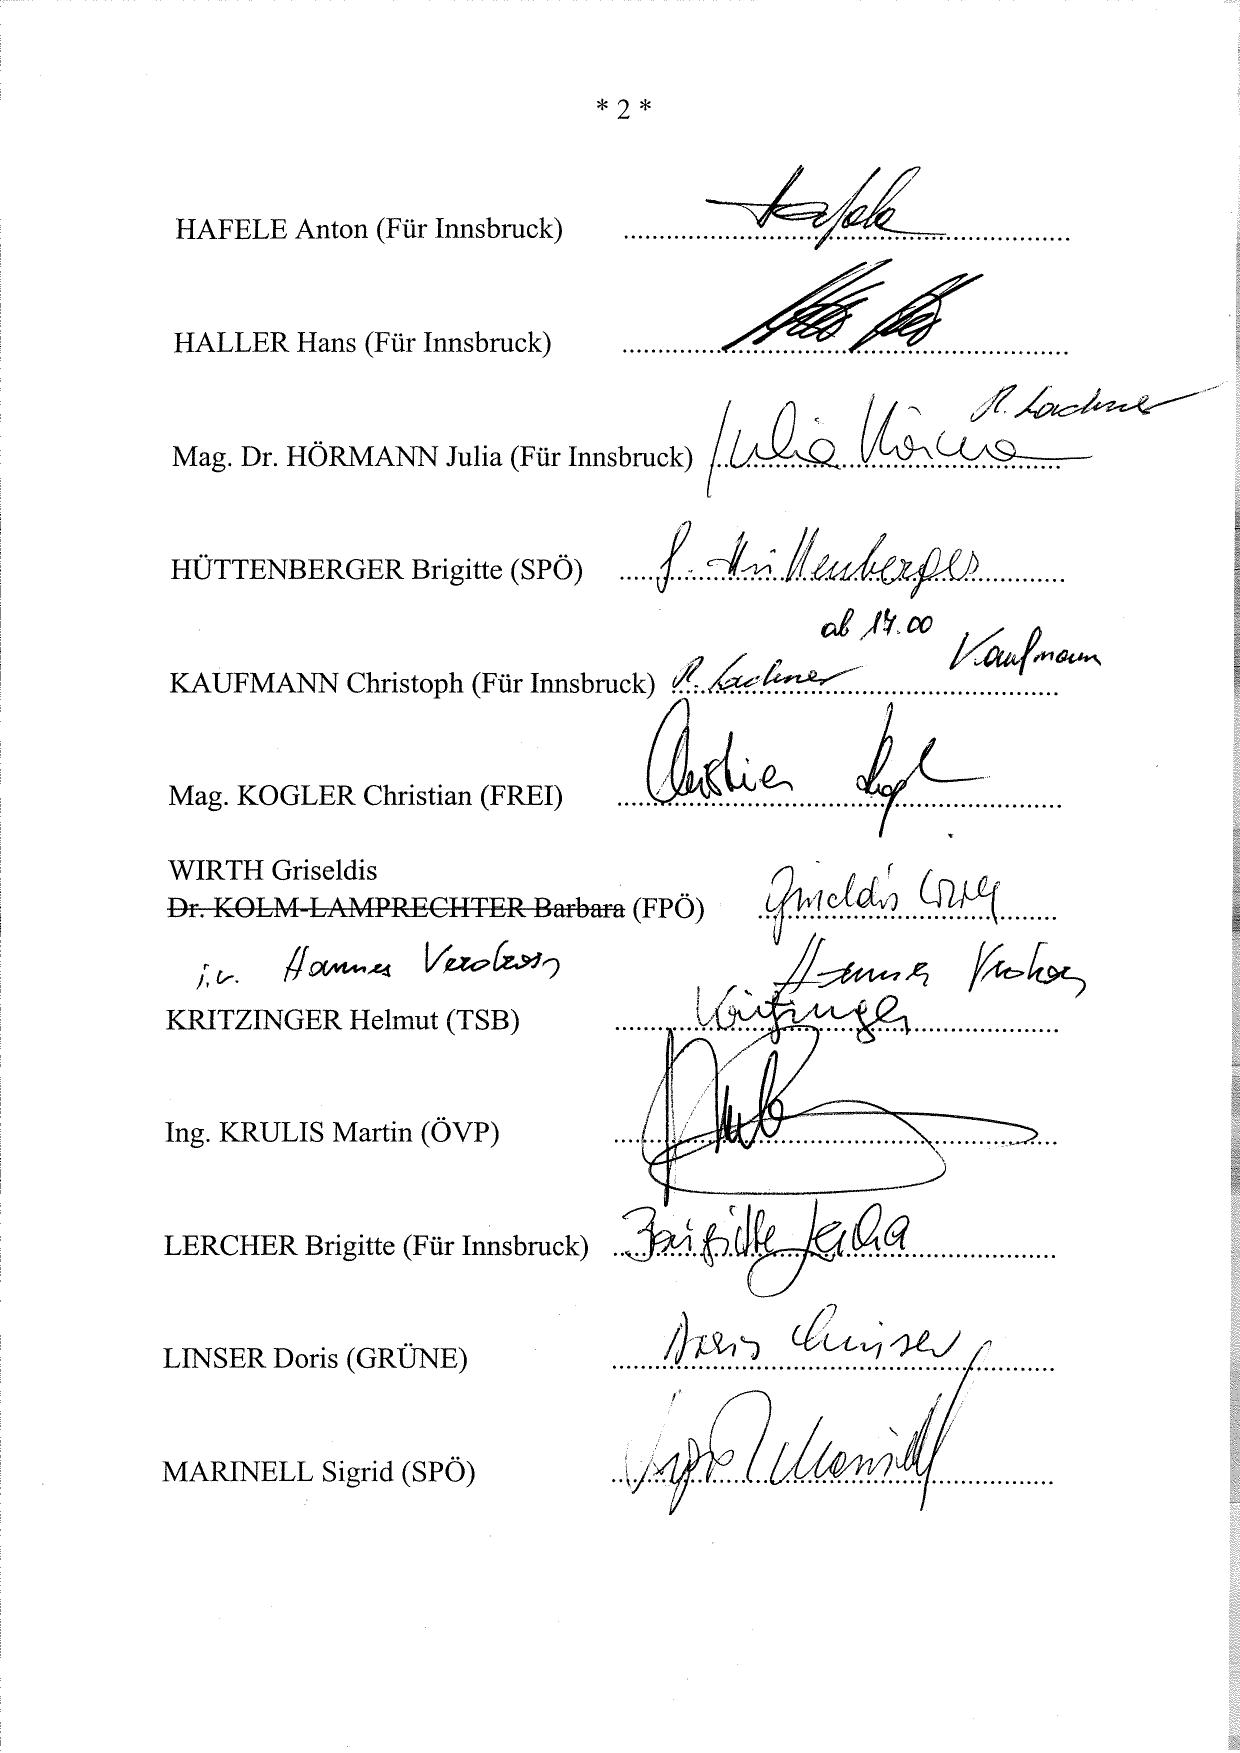 * 2 *
HAFELE Anton (Für Innsbruck) Hafele
HALLER Hans (Für Innsbruck)
R. Lachner
Mag. Dr. HÖRMANN Julia (Für Innsbruck) Julia Hörmann
HÜTTENBERGER Brigitte (SPÖ) Hüttenberger
ab 17.00
Kaufmann
KAUFMANN Christoph (Für Innsbruck) R. Lachner
Mag. KOGLER Christian (FREI) Christian Kogl
WIRTH Griseldis
Dr. KOLM-LAMPRECHTER Barbara (FPÖ) Griseldis Wirth
i.V. Hannes Hannes
KRITZINGER Helmut (TSB) Kritzinger
Ing. KRULIS Martin (ÖVP)
LERCHER Brigitte (Für Innsbruck) Brigitte Lercher
LINSER Doris (GRÜNE) Doris Linser
MARINELL Sigrid (SPÖ) Sigrid Marinell